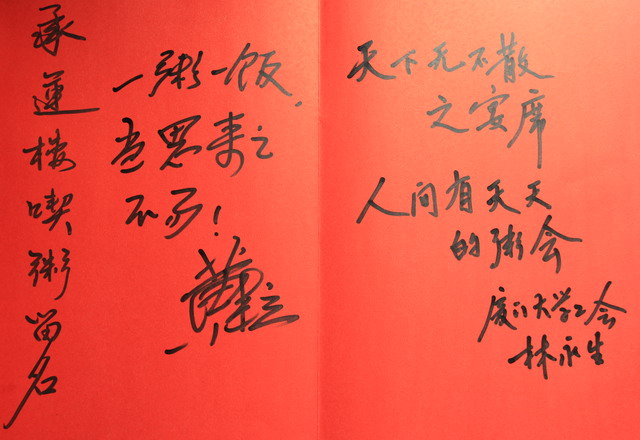 承蓮楼喫粥留名
一粥一饭，
当思来之
不易！
天下无不散
之宴席
人间有天天
的粥会
厦门大学工会
林永生